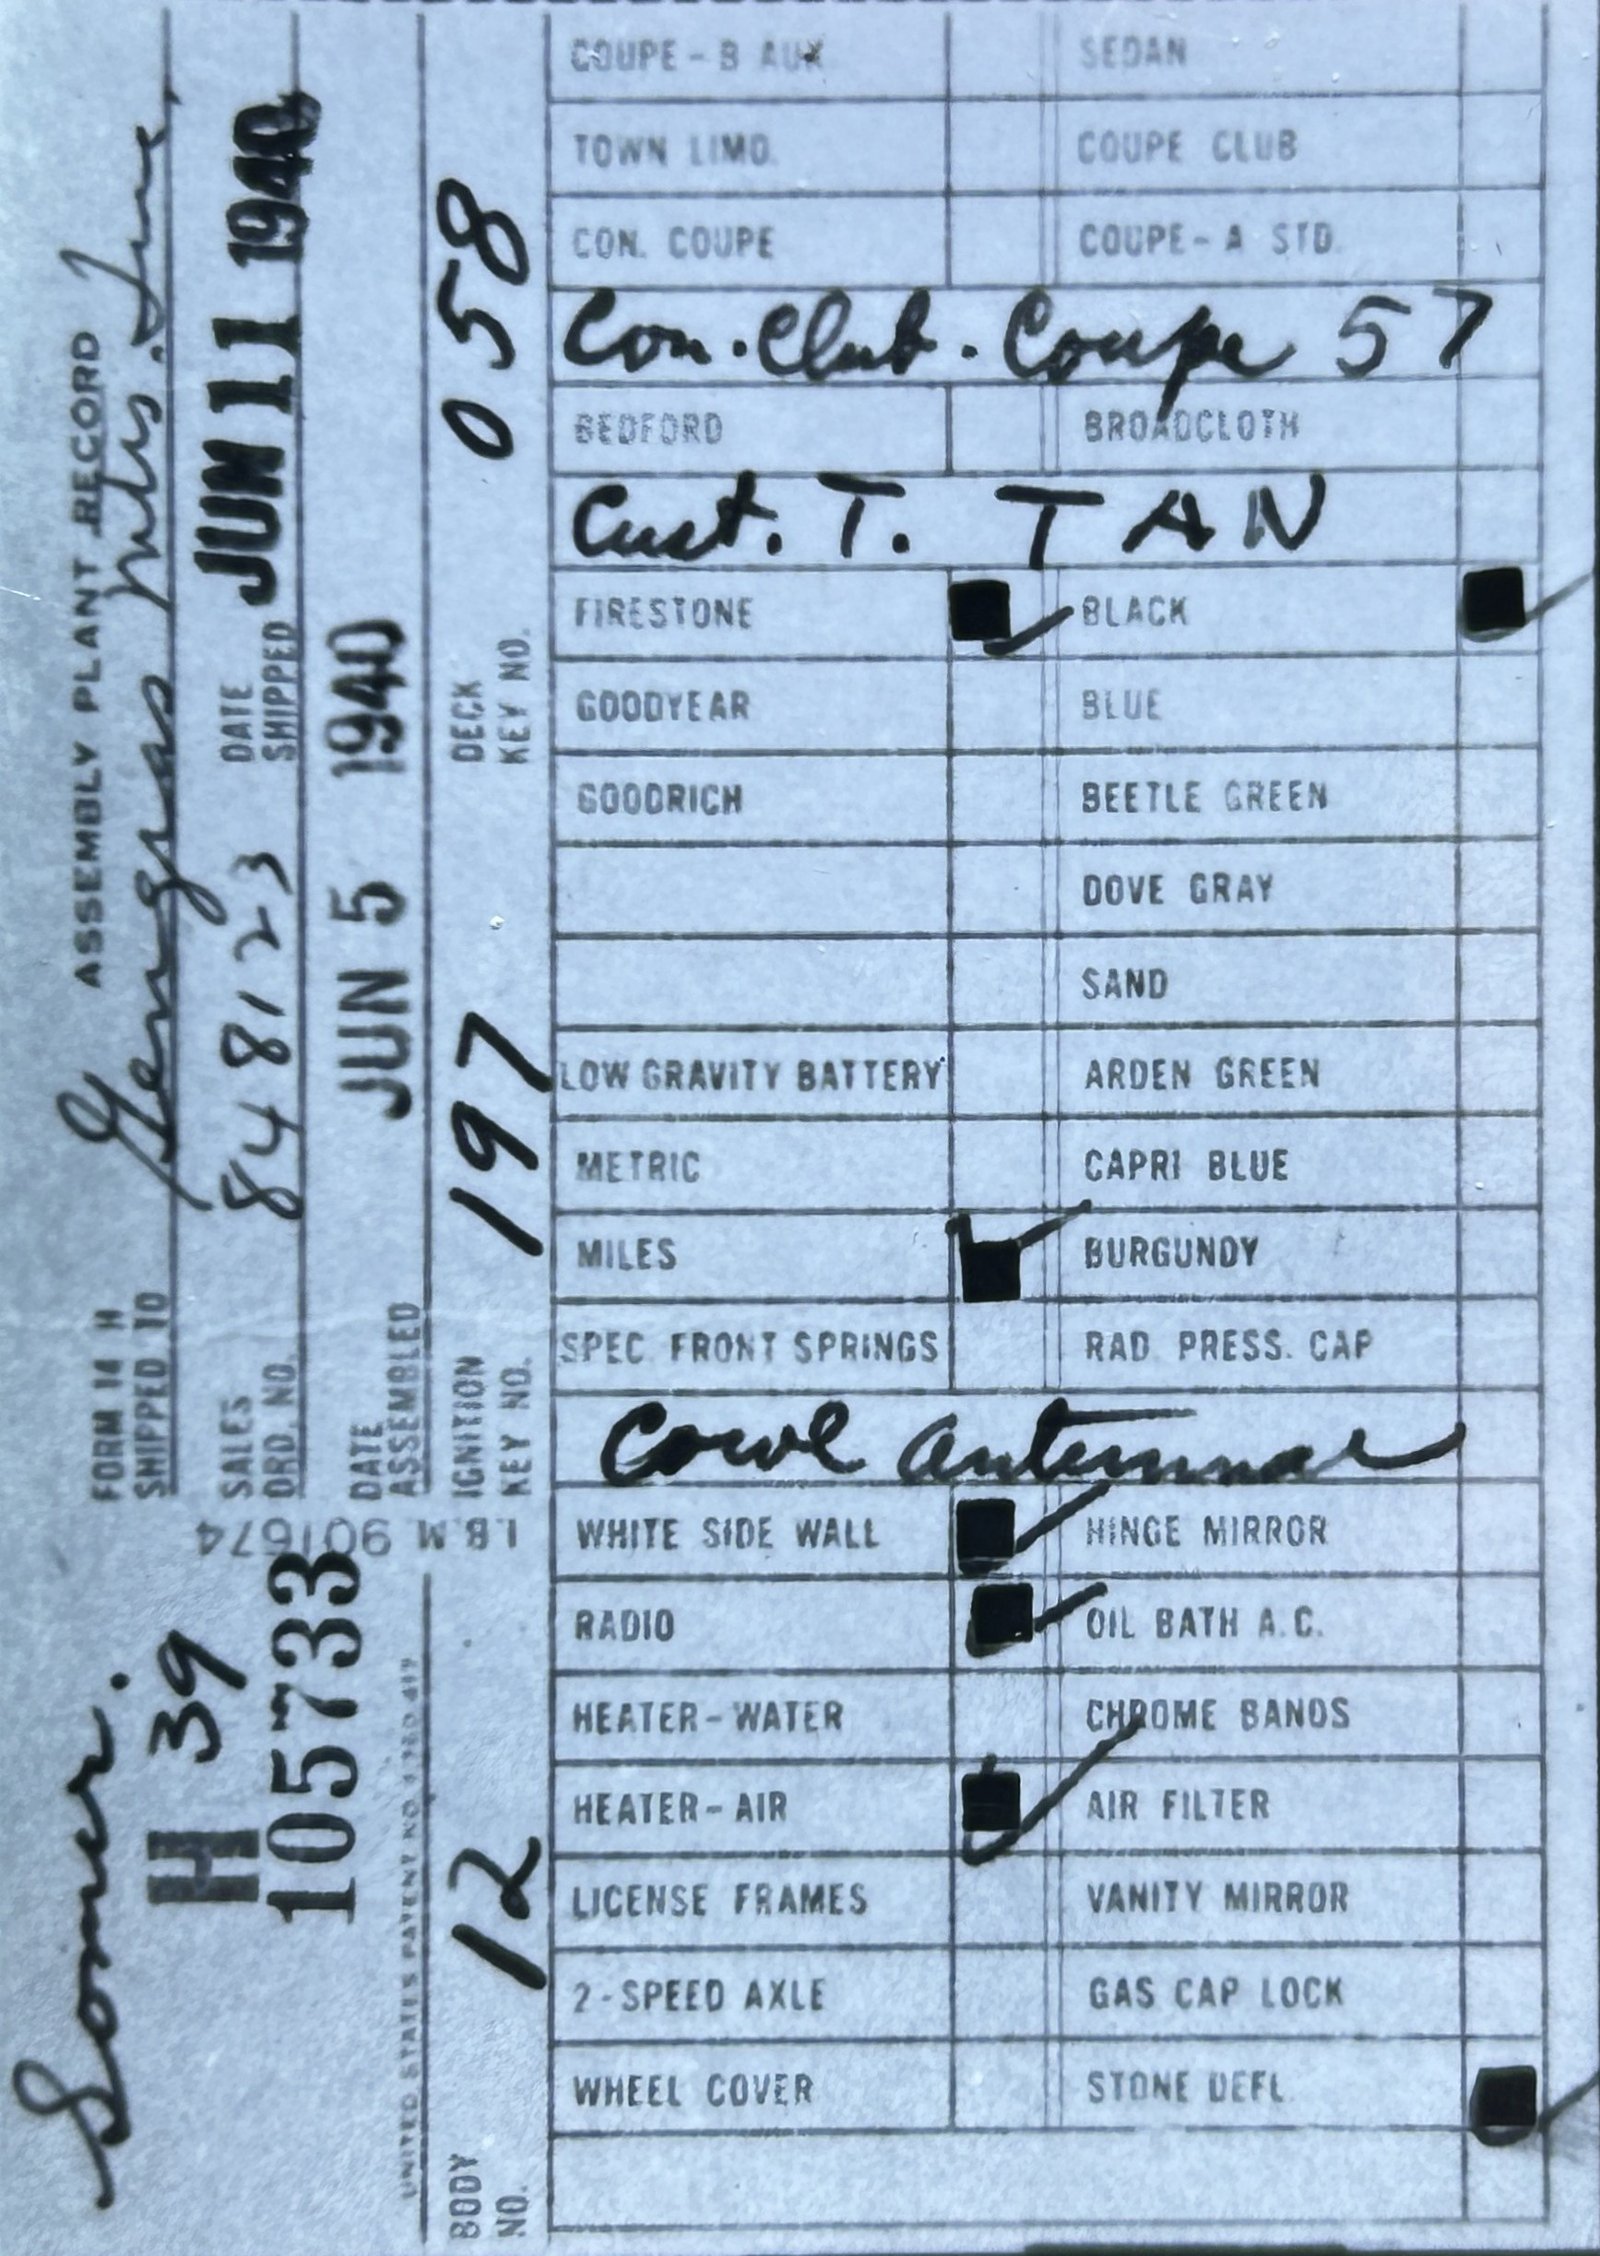 ASSEMBLY PLANT RECORD
FORM 14 H
SHIPPED TO Gengras Mtrs. Inc.
SALES ORD. NO. 848123
DATE SHIPPED JUN 11 1940
DATE ASSEMBLED JUN 5 1940
IGNITION KEY NO. 197
DECK KEY NO. 058
I.B.M. 901674
H 39
105733
UNITED STATES PATENT NO.
BODY NO. 12
COUPE - B AUX. SEDAN
TOWN LIMO. COUPE CLUB
CON. COUPE COUPE - A STD.
Con. Club. Coupe 57
BEDFORD BROADCLOTH
Cust. T. TAN
FIRESTONE BLACK
GOODYEAR BLUE
GOODRICH BEETLE GREEN
DOVE GRAY
SAND
LOW GRAVITY BATTERY ARDEN GREEN
METRIC CAPRI BLUE
MILES BURGUNDY
SPEC. FRONT SPRINGS RAD. PRESS. CAP
Cowl antennae
WHITE SIDE WALL HINGE MIRROR
RADIO OIL BATH A.C.
HEATER - WATER CHROME BANDS
HEATER - AIR AIR FILTER
LICENSE FRAMES VANITY MIRROR
2 - SPEED AXLE GAS CAP LOCK
WHEEL COVER STONE DEFL.